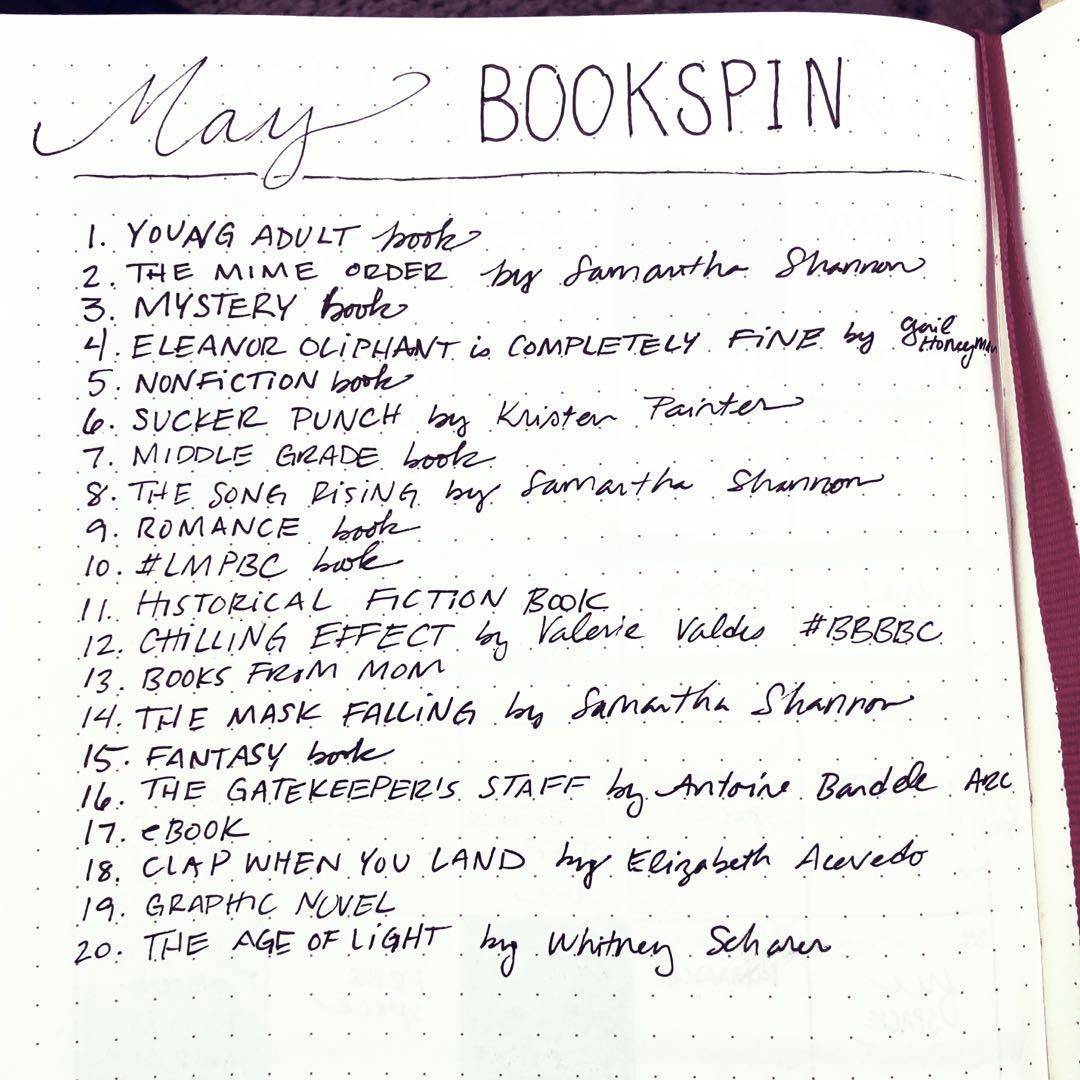 May BOOKSPIN
1. YOUNG ADULT book
2. THE MIME ORDER by Samantha Shannon
3. MYSTERY book
4. ELEANOR OLIPHANT is COMPLETELY FINE by Gail Honeyman
5. NONFICTION book
6. SUCKER PUNCH by Kristen Painter
7. MIDDLE GRADE book
8. THE SONG RISING by Samantha Shannon
9. ROMANCE book
10. #LMPBC book
11. HISTORICAL FICTION BOOK
12. CHILLING EFFECT by Valerie Valdes #BBBBC
13. BOOKS FROM MOM
14. THE MASK FALLING by Samantha Shannon
15. FANTASY book
16. THE GATEKEEPER'S STAFF by Antoine Bandele ARC
17. eBOOK
18. CLAP WHEN YOU LAND by Elizabeth Acevedo
19. GRAPHIC NOVEL
20. THE AGE OF LIGHT by Whitney Scharer